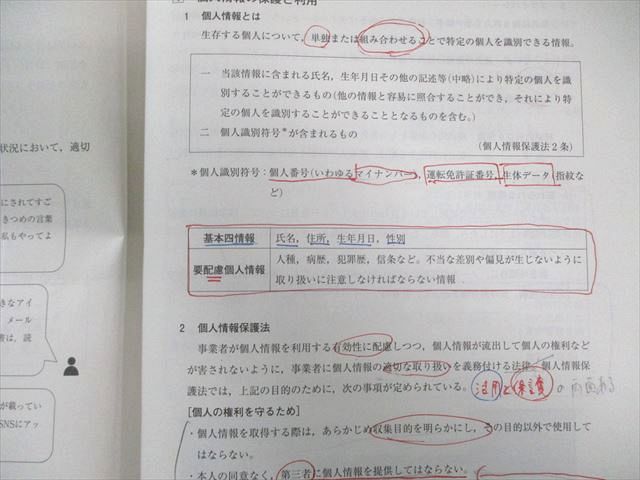 個人情報の保護と利用
1 個人情報とは
生存する個人について，単独または組み合わせることで特定の個人を識別できる情報。
一 当該情報に含まれる氏名，生年月日その他の記述等(中略)により特定の個人を識
別することができるもの(他の情報と容易に照合することができ，それにより特
定の個人を識別することができることとなるものを含む。)
二 個人識別符号*が含まれるもの
(個人情報保護法2条)
*個人識別符号：個人番号(いわゆるマイナンバー)，運転免許証番号，生体データ(指紋な
ど)
基本四情報 氏名，住所，生年月日，性別
要配慮個人情報 人種，病歴，犯罪歴，信条など。不当な差別や偏見が生じないように
取り扱いに注意しなければならない情報
2 個人情報保護法
事業者が個人情報を利用する有効性に配慮しつつ，個人情報が流出して個人の権利など
が害されないように，事業者に個人情報の適切な取り扱いを義務付ける法律。個人情報保
護法では，上記の目的のために，次の事項が定められている。
活用と保護の両面ある
[個人の権利を守るため]
・個人情報を取得する際は，あらかじめ収集目的を明らかにし，その目的以外で使用して
はならない。
・本人の同意なく，第三者に個人情報を提供してはならない。
状況において，適切
にされてすご
きつめの言葉
私もやってよ
きなアイ
メール
者は，読
が載ってい
SNSにアッ